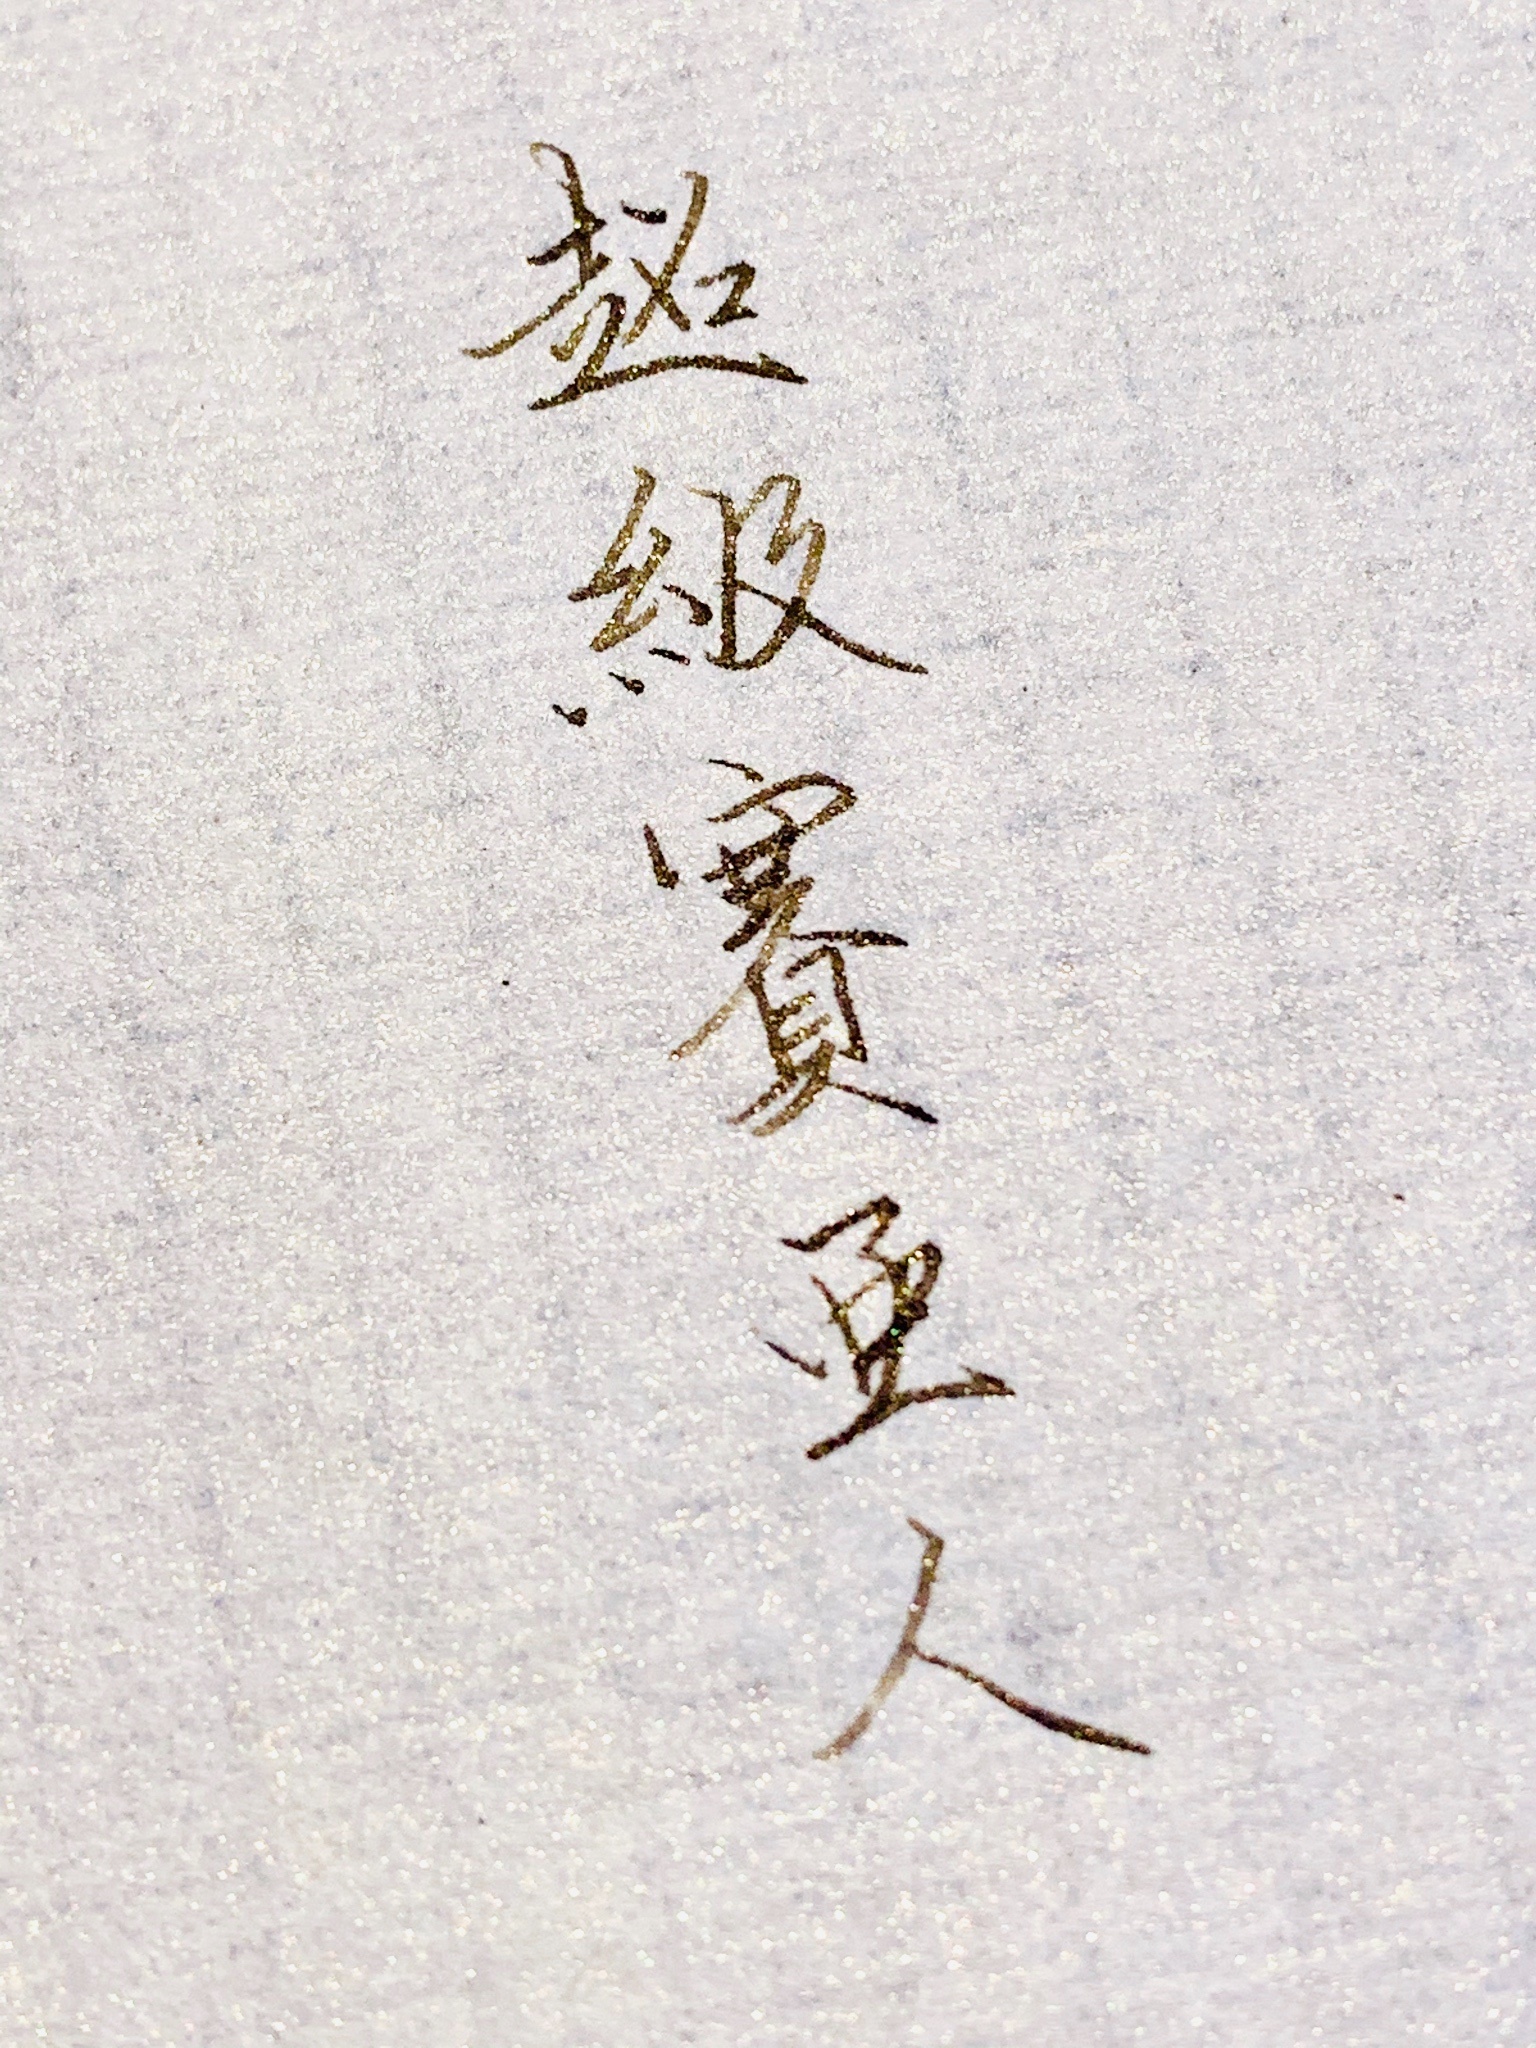 超級賽亞人